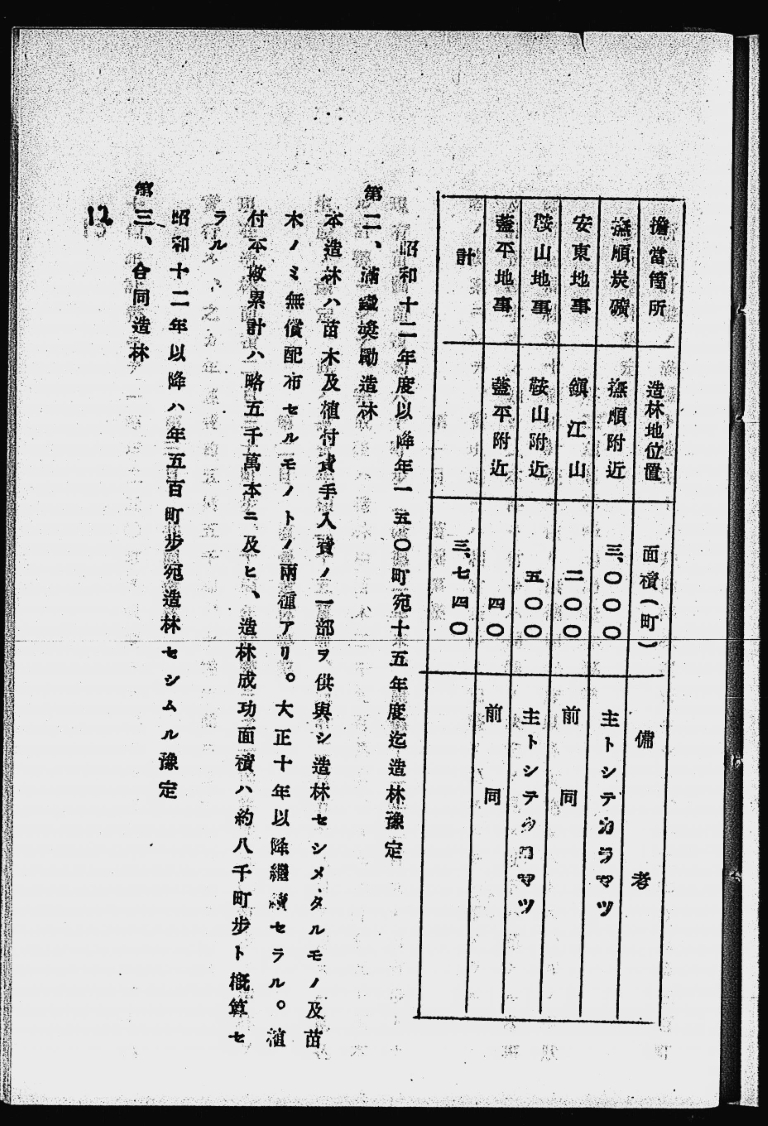 擔當箇所 造林地位置 面積(町) 備考
撫順炭礦 撫順附近 三、〇〇〇 主トシテカラマツ
安東地事 鎭江山 二〇〇 前同
鞍山地事 鞍山附近 五〇〇 主トシテクロマツ
蓋平地事 蓋平附近 四〇 前同
計 三、七四〇
昭和十二年度以降年一五〇町宛十五年度迄造林豫定
第二、滿鐵奬勵造林
本造林ハ苗木及植付費手入費ノ一部ヲ供與シ造林セシメタルモノ及苗
木ノミ無償配布セルモノトノ兩種アリ。大正十年以降繼續セラル。植
付本數累計ハ略五千萬本ニ及ヒ、造林成功面積ハ約八千町步ト槪算セ
ラル
昭和十二年以降ハ年五百町步宛造林セシムル豫定
第三、合同造林
12